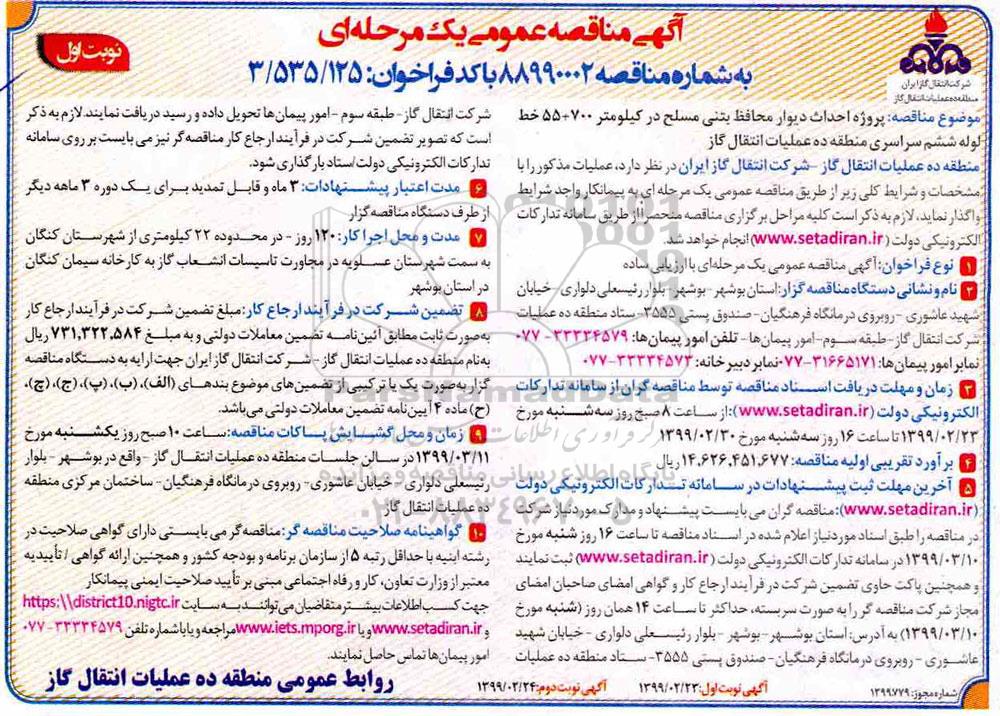 آگهی مناقصه عمومی یک مرحله‌ای
نوبت اول
به شماره مناقصه ۸۸۹۹۰۰۰۲ با کد فراخوان: ۳/۵۳۵/۱۲۵
شرکت انتقال گاز ایران
منطقه ده عملیات انتقال گاز
موضوع مناقصه: پروژه احداث دیوار محافظ بتنی مسلح در کیلومتر ۷۰۰+۵۵ خط
لوله ششم سراسری منطقه ده عملیات انتقال گاز
منطقه ده عملیات انتقال گاز - شرکت انتقال گاز ایران در نظر دارد، عملیات مذکور را با
مشخصات و شرایط کلی زیر از طریق مناقصه عمومی یک مرحله ای به پیمانکار واجد شرایط
واگذار نماید، لازم به ذکر است کلیه مراحل برگزاری مناقصه منحصرا از طریق سامانه تدارکات
الکترونیکی دولت (www.setadiran.ir) انجام خواهد شد.
۱ نوع فراخوان: آگهی مناقصه عمومی یک مرحله‌ای با ارزیابی ساده
۲ نام و نشانی دستگاه مناقصه گزار: استان بوشهر - بوشهر - بلوار رئیسعلی دلواری - خیابان
شهید عاشوری - روبروی درمانگاه فرهنگیان - صندوق پستی ۳۵۵۵- ستاد منطقه ده عملیات
شرکت انتقال گاز - طبقه سوم - امور پیمان‌ها - تلفن امور پیمان‌ها: ۳۳۳۳۴۵۷۹-۰۷۷
نمابر امور پیمان ها: ۳۱۶۶۵۱۷۱-۰۷۷ نمابر دبیرخانه: ۳۳۳۳۴۵۷۳-۰۷۷
۳ زمان و مهلت دریافت اسناد مناقصه توسط مناقصه گران از سامانه تدارکات
الکترونیکی دولت (www.setadiran.ir): از ساعت ۸ صبح روز سه شنبه مورخ
۱۳۹۹/۰۲/۲۳ تا ساعت ۱۶ روز سه شنبه مورخ ۱۳۹۹/۰۲/۳۰
۴ برآورد تقریبی اولیه مناقصه: ۱۴,۶۲۶,۴۵۱,۶۷۷ ریال
۵ آخرین مهلت ثبت پیشنهادات در سامانه تدارکات الکترونیکی دولت
(www.setadiran.ir): مناقصه گران می بایست پیشنهاد و مدارک مورد نیاز شرکت
در مناقصه را طبق اسناد موردنیاز اعلام شده در اسناد مناقصه تا ساعت ۱۶ روز شنبه مورخ
۱۳۹۹/۰۳/۱۰ در سامانه تدارکات الکترونیکی دولت (www.setadiran.ir) ثبت نمایند
و همچنین پاکت حاوی تضمین شرکت در فرآیند ارجاع کار و گواهی امضای صاحبان امضای
مجاز شرکت مناقصه گر را به صورت سربسته، حداکثر تا ساعت ۱۴ همان روز (شنبه مورخ
۱۳۹۹/۰۳/۱۰) به آدرس: استان بوشهر - بوشهر - بلوار رئیسعلی دلواری - خیابان شهید
عاشوری - روبروی درمانگاه فرهنگیان - صندوق پستی ۳۵۵۵- ستاد منطقه ده عملیات
شرکت انتقال گاز - طبقه سوم - امور پیمان‌ها تحویل داده و رسید دریافت نمایند. لازم به ذکر
است که تصویر تضمین شرکت در فرآیند ارجاع کار مناقصه گر نیز می بایست بر روی سامانه
تدارکات الکترونیکی دولت/ستاد بارگذاری شود.
۶ مدت اعتبار پیشنهادات: ۳ ماه و قابل تمدید برای یک دوره ۳ ماهه دیگر
از طرف دستگاه مناقصه گزار
۷ مدت و محل اجرا کار: ۱۲۰ روز - در محدوده ۲۲ کیلومتری از شهرستان کنگان
به سمت شهرستان عسلویه در مجاورت تاسیسات انشعاب گاز به کارخانه سیمان کنگان
در استان بوشهر
۸ تضمین شرکت در فرآیند ارجاع کار: مبلغ تضمین شرکت در فرآیند ارجاع کار
به صورت ثابت مطابق آئین‌نامه تضمین معاملات دولتی و به مبلغ ۷۳۱,۳۲۲,۵۸۴ ریال
به نام منطقه ده عملیات انتقال گاز - شرکت انتقال گاز ایران جهت ارایه به دستگاه مناقصه
گزار به صورت یک یا ترکیبی از تضمین‌های موضوع بندهای (الف)، (ب)، (پ)، (ج)، (چ)،
(ح) ماده ۴ آیین‌نامه تضمین معاملات دولتی می‌باشد.
۹ زمان و محل گشایش پاکات مناقصه: ساعت ۱۰ صبح روز یکشنبه مورخ
۱۳۹۹/۰۳/۱۱ در سالن جلسات منطقه ده عملیات انتقال گاز - واقع در بوشهر - بلوار
رئیسعلی دلواری - خیابان عاشوری - روبروی درمانگاه فرهنگیان - ساختمان مرکزی منطقه
ده عملیات انتقال گاز
۱۰ گواهینامه صلاحیت مناقصه گر: مناقصه گر می بایستی دارای گواهی صلاحیت در
رشته ابنیه با حداقل رتبه ۵ از سازمان برنامه و بودجه کشور و همچنین ارائه گواهی / تأییدیه
معتبر از وزارت تعاون، کار و رفاه اجتماعی مبنی بر تأیید صلاحیت ایمنی پیمانکار
جهت کسب اطلاعات بیشتر متقاضیان می‌توانند به سایت https:\\district10.nigtc.ir
و www.setadiran.ir و یا www.iets.mporg.ir مراجعه و یا با شماره تلفن ۳۳۳۳۴۵۷۹-۰۷۷
امور پیمان‌ها تماس حاصل نمایند.
روابط عمومی منطقه ده عملیات انتقال گاز
آگهی نوبت اول: ۱۳۹۹/۰۲/۲۳ آگهی نوبت دوم: ۱۳۹۹/۰۲/۲۴
شماره مجوز: ۱۳۹۹.۷۷۹
ParsNamadData
پایگاه اطلاع رسانی مناقصه و مزایده